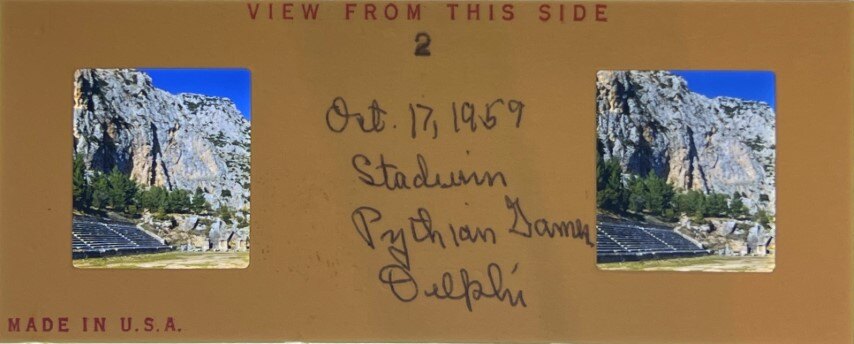 VIEW FROM THIS SIDE
2
Oct. 17, 1959
Stadium
Pythian Games
Delphi
MADE IN U.S.A.